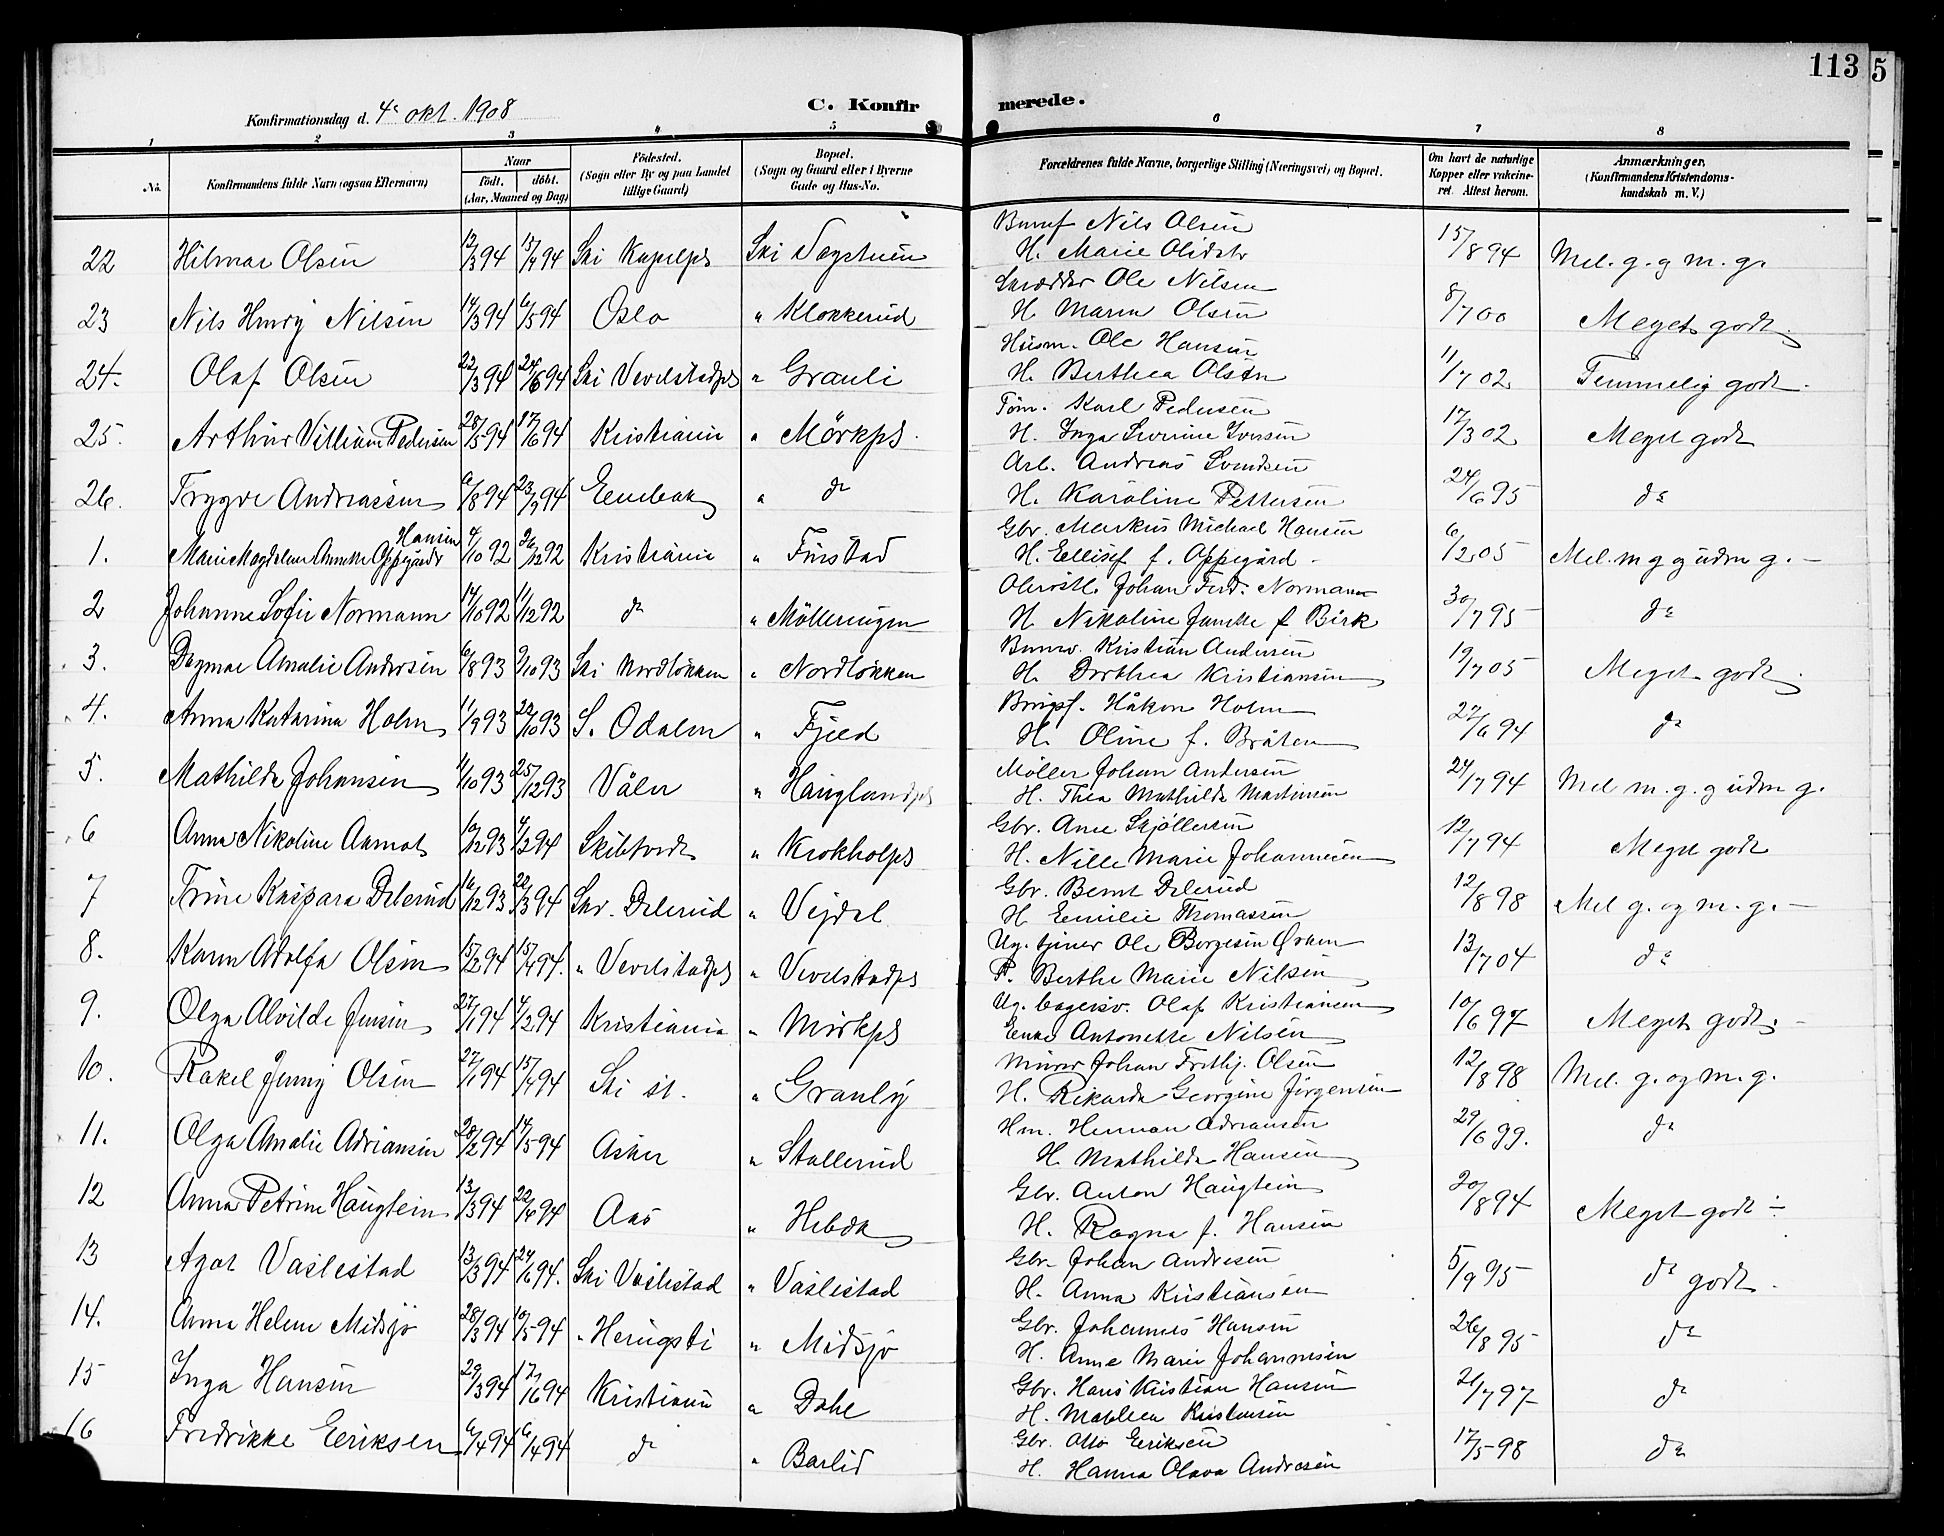 113 5
Konfirmationsdag d. 4de okt. 1908
C. Konfirmerede.
1 2 3 4 5 6 7 8
No.
Konfirmandens fulde Navn (ogsaa Efternavn)
Naar
födt. döbt.
(Aar, Maaned og Dag)
Födested.
(Sogn eller By og paa Landet
tillige Gaard)
Bopæl.
(Sogn og Gaard eller i Byerne
Gade og Hus-No.
Forældrenes fulde Navne, borgerlige Stilling (Næringsvei) og Bopæl.
Om havt de naturlige
Kopper eller vakcine-
ret. Attest herom.
Anmærkninger,
(Konfirmandens Kristendoms-
kundskab m. V.)
22 Hilmar Olsen 12/3 94 15/4 94 Ski Ski Nils Olsen
H. Marie 15/8 94 Mel. g. og m. g.
23 Nils Henry Nilsen 14/3 94 6/5 94 Oslo " Klokkerud Skrædder Ole Nilsen
H. Maren Olsen 8/7 00 Meget godt.
24. Olaf Olsen 22/3 94 24/6 94 Ski Vevelstadpl " Granli Husm. Ole Hansen
H. Berthea Olsen 11/7 02 Temmelig godt.
25. Arthur Villiam Pedersen 28/5 94 17/6 94 Kristiania " Mörkpl. Töm. Karl Pedersen
H. Inga Severine Iversen 17/3 02 Meget godt
26. Trygve Andreassen 6/8 94 23/9 94 Enebak " do Arb. Andreas Svendsen
H. Karoline Pettersen 24/6 95 do
1. Marie Magdalene Annette Oppegård Hansen 4/10 92 26/12 92 Kristiania " Finstad Gbr. Markus Michael Hansen
H. Ellisef f. Oppegård 6/2 05 Mel. m g og udm g. –
2 Johanne Sofie Normann 14/10 92 11/12 92 do " Mölleringen Johan Ferd. Normann
H. Nikoline Janette f Birk 30/7 95 do
3. Dagmar Amalie Andersen 6/8 93 8/10 93 Ski Nordlökken " Nordlökken Kristian Andersen
H. Dorthea Kristiansen 19/7 05 Meget godt
4. Anna Katarina Holm 11/9 93 22/10 93 S. Odalen " Fjeld Håkon Holm
H. Oline f. Bråten 27/6 94 do
5. Mathilde Johansen 11/10 93 25/12 93 Våler " Hauglandpl Möller Johan Andersen
H. Thea Mathilde Martinsen 24/7 94 Mel m. g. og udm g.
6 Anna Nikoline Aamot 10/12 93 4/2 94 Skibtvedt " Krokholpl Gbr. Ane Skjöllersen
H. Nille Marie Johannesen 12/7 94 Meget godt
7 Trine Kaspara Delerud 16/12 93 22/3 94 Skr. Delerud " Vejdal Gbr. Bernt Delerud
H. Emilie Thomassen 12/8 98 Mel g. og m. g. –
8. Karen Adolfa Olsen 15/2 94 15/4 94. " Vevelstadpl " Vevelstadpl Ug. tjener Ole Borgesen
P. Berthe Marie Nilsen 13/7 04 do
9. Olga Alvilde Jensen 27/1 94 4/2 94 Kristiania " Mörkpl Ug. bagersv. Olaf Kristiansen
Enke Antonette Nilsen 10/6 97 Meget godt. –
10. Rakel Jenny Olsen 27/1 94 15/4 94 Ski st. " Granly Murer Johan Frithj. Olsen
H. Rikarda Georgine Jörgensen 12/8 98 Mel. g. og m. g.
11. Olga Amalie Adriansen 28/2 94 14/5 94 Asker " Stallerud Hm. Herman Adriansen
H. Mathilde Hansen 29/6 99. do
12 Anna Petrine Haugtein 13/3 94 22/4 94 Aas " Hebæk Gbr. Anton Haugtein
H. Ragna f. Hansen 20/8 94 Meget godt –
13 Agot Vaslestad 13/3 94 24/6 94. Ski Vaslestad " Vaslestad Gbr. Johan Andresen
H. Anna Kristiansen 5/9 95 do godt.
14. Anna Helene Midsjö 28/3 94 10/5 94 " Herugsti " Midsjö Gbr. Johannes Hansen
H. Anne Marie Johannesen 26/8 95 do
15 Inga Hansen 29/3 94 17/6 94 Kristiania " Dahl Gbr. Hans Kristian Hansen
H. Mathea Kristensen 21/7 97 do
16 Fredrikke Eriksen 6/4 94 6/4 94 do " Barlid Gbr. Otto Eriksen
H. Hanna Olava Andresen 17/5 98 do